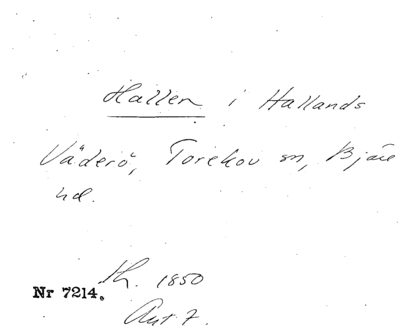 Hallen i Hallands
Väderö, Torekov sn, Bjäre
hd.
Th. 1850
Nr 7214.
Ant 7.